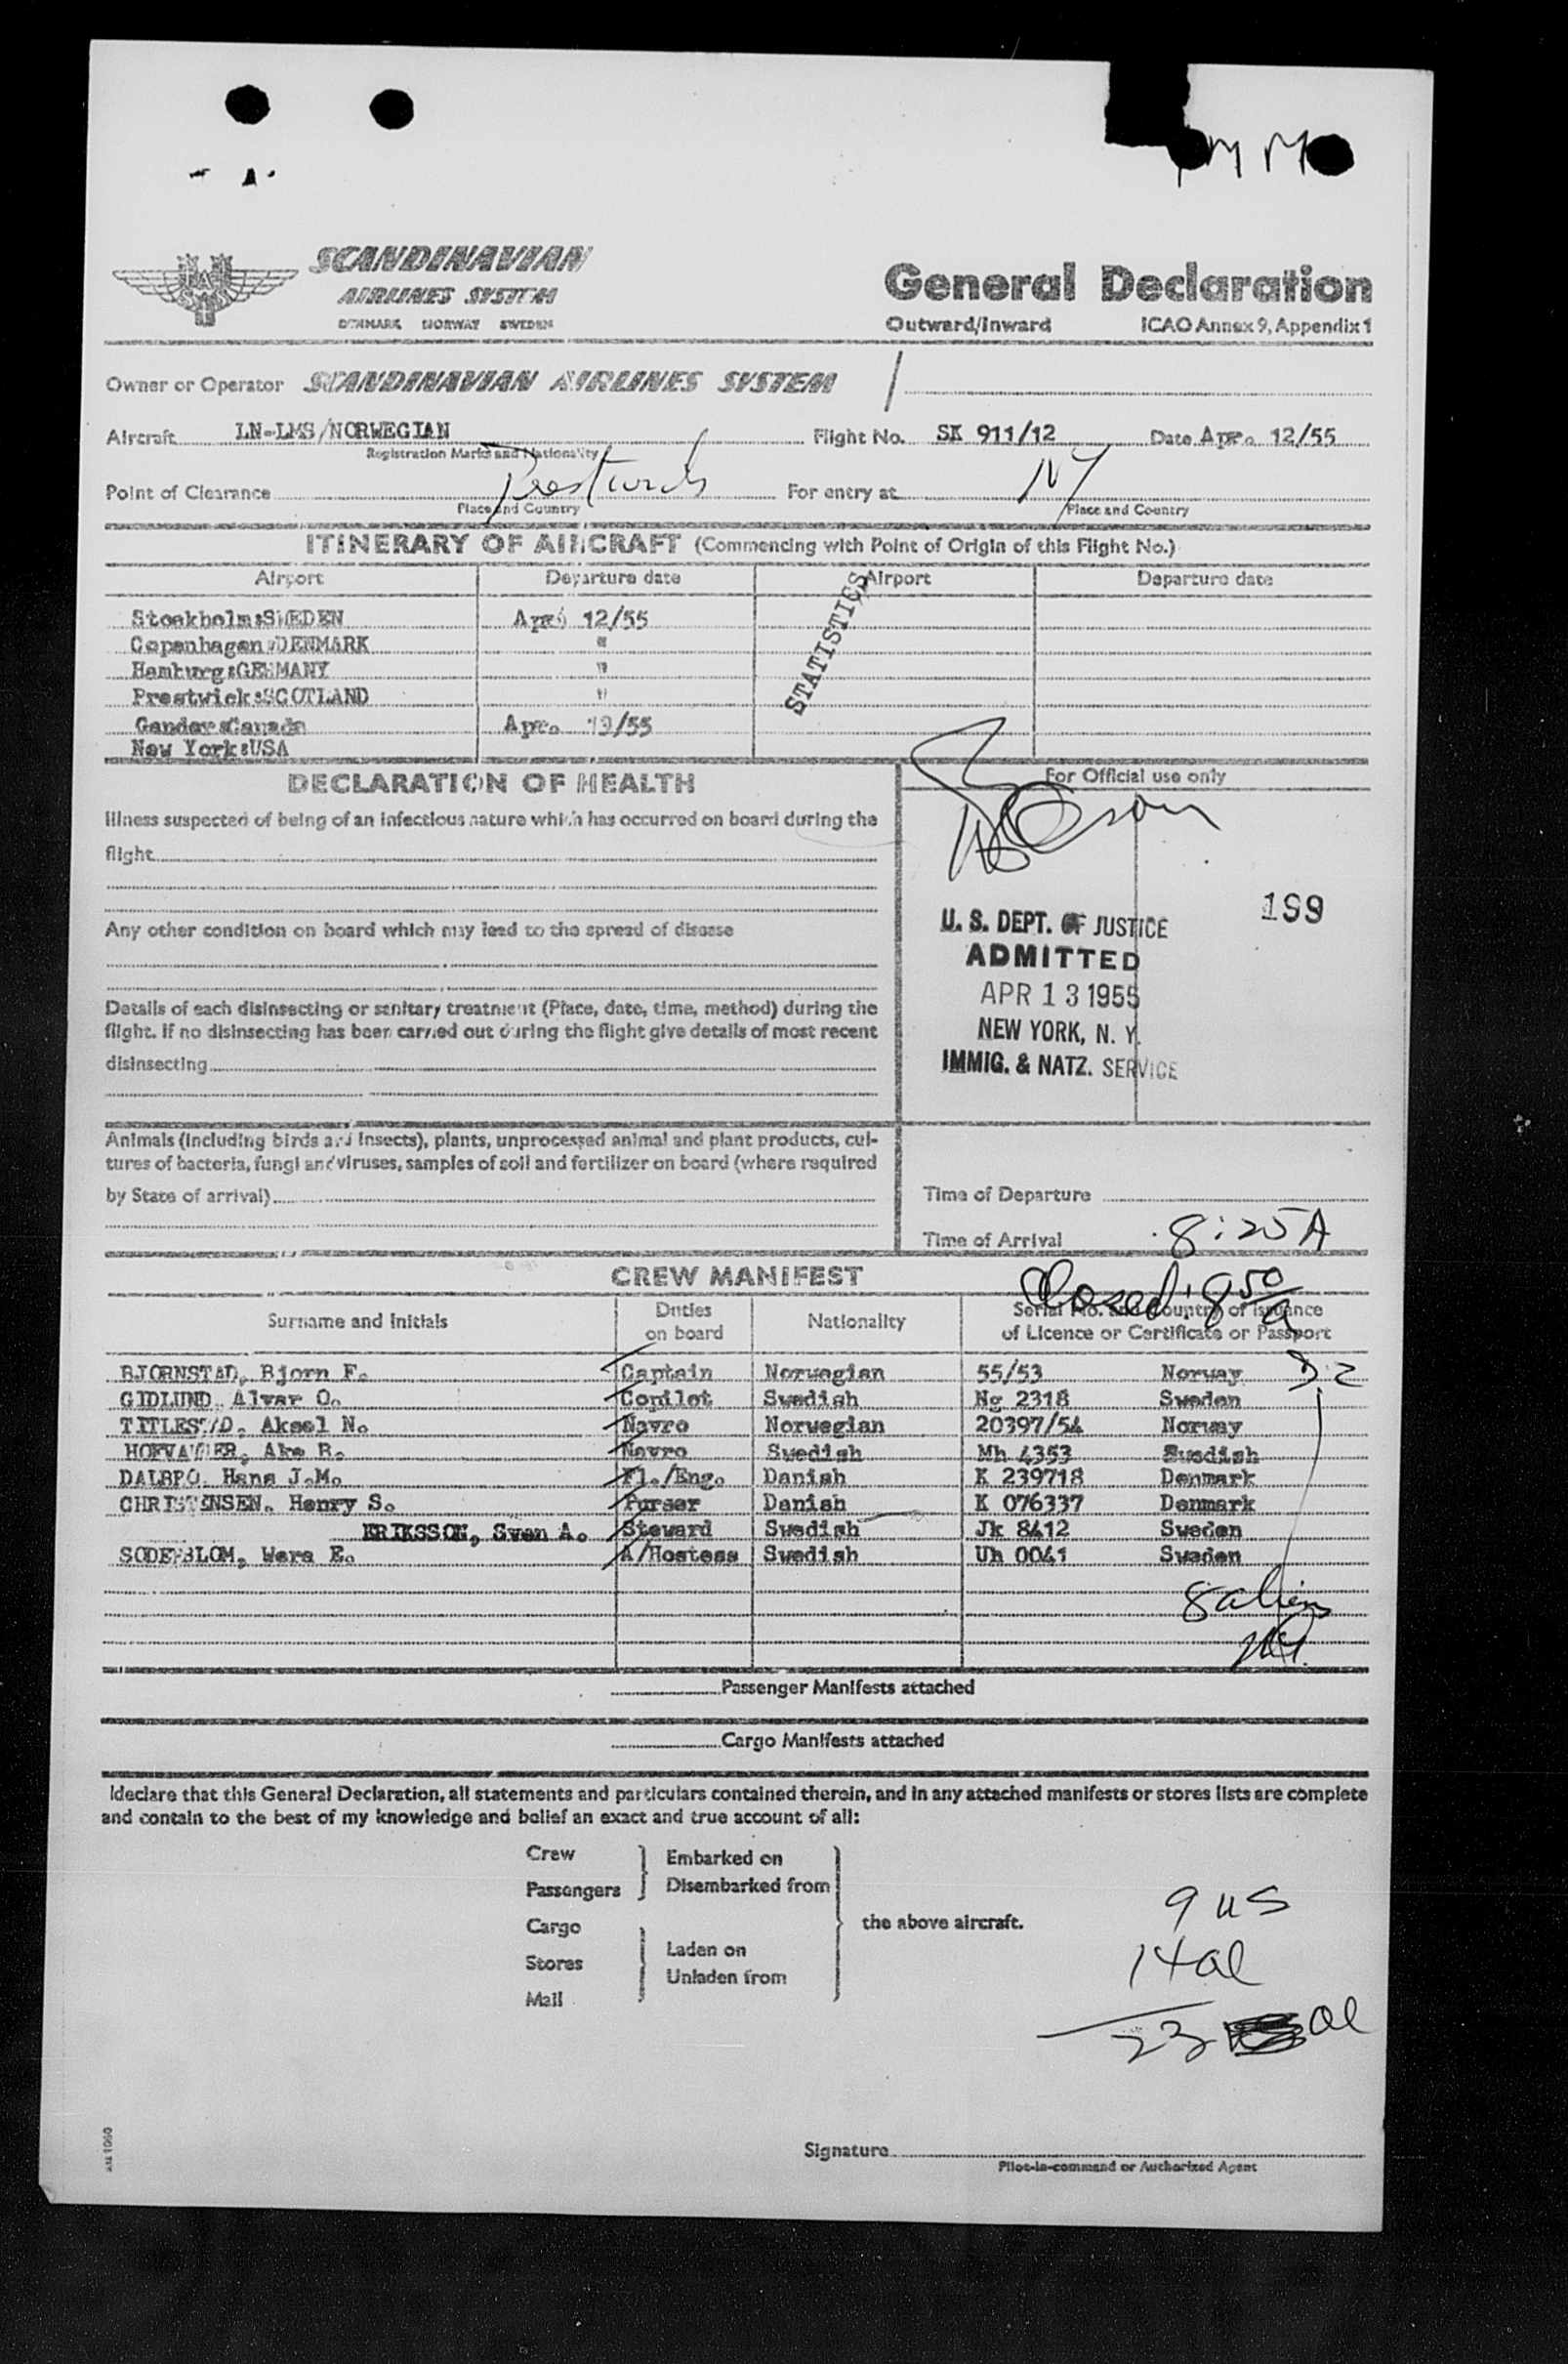 M M
SAS
SCANDINAVIAN
AIRLINES SYSTEM
DENMARK NORWAY SWEDEN
General Declaration
Outward/Inward ICAO Annex 9, Appendix 1
Owner or Operator SCANDINAVIAN AIRLINES SYSTEM
Aircraft LN-LMS/NORWEGIAN Flight No. SK 911/12 Date Apr. 12/55
Registration Marks and Nationality
Point of Clearance Prestwick For entry at NY
Place and Country Place and Country
ITINERARY OF AIRCRAFT (Commencing with Point of Origin of this Flight No.)
Airport Departure date Airport Departure date
STATISTICS
Stockholm:SWEDEN Apr. 12/55
Copenhagen:DENMARK "
Hamburg:GERMANY "
Prestwick:SCOTLAND "
Gander:Canada Apr. 13/55
New York:USA
DECLARATION OF HEALTH
For Official use only
Illness suspected of being of an infectious nature which has occurred on board during the
flight
Any other condition on board which may lead to the spread of disease
199
U. S. DEPT. OF JUSTICE
ADMITTED
APR 13 1955
NEW YORK, N. Y.
IMMIG. & NATZ. SERVICE
Details of each disinsecting or sanitary treatment (Place, date, time, method) during the
flight. If no disinsecting has been carried out during the flight give details of most recent
disinsecting
Animals (including birds and insects), plants, unprocessed animal and plant products, cul-
tures of bacteria, fungi and viruses, samples of soil and fertilizer on board (where required
by State of arrival)
Time of Departure
Time of Arrival 8:25 A
CREW MANIFEST
Closed: 8 50/a
Surname and Initials Duties on board Nationality Serial No. and Country of Issuance
of Licence or Certificate or Passport
BJORNSTAD, Bjorn F. Captain Norwegian 55/53 Norway D-2
GIDLUND, Alvar O. Copilot Swedish Ng 2318 Sweden
TITLESTAD, Aksel N. Navro Norwegian 20397/54 Norway
Ake B. Navro Swedish Mh 4353 Swedish
DALBRO, Hans J.M. Fl./Eng. Danish K 239718 Denmark
CHRISTENSEN, Henry S. Purser Danish K 076337 Denmark
ERIKSSON, Sven A. Steward Swedish Jk 8412 Sweden
SODERBLOM, Wera E. A/Hostess Swedish Uh 0041 Sweden
8 aliens
Passenger Manifests attached
Cargo Manifests attached
I declare that this General Declaration, all statements and particulars contained therein, and in any attached manifests or stores lists are complete
and contain to the best of my knowledge and belief an exact and true account of all:
Crew Embarked on
Passengers Disembarked from
Cargo the above aircraft.
Stores Laden on
Unladen from
Mail
9 US
14 al
23 al
Signature
Pilot-in-command or Authorized Agent